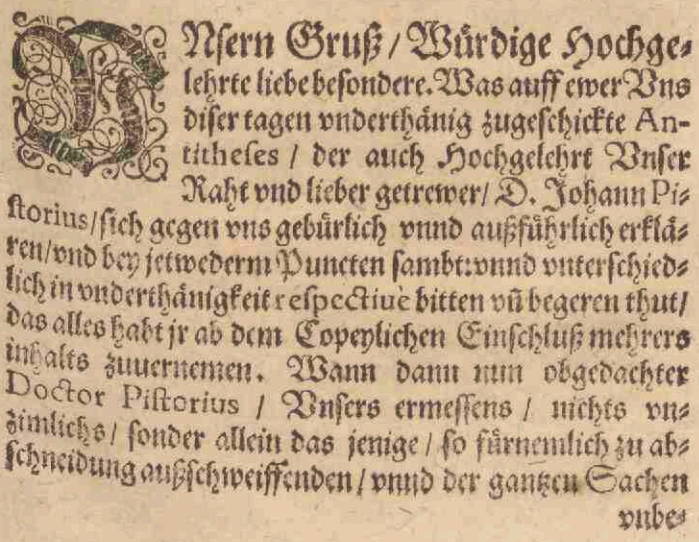 VNsern Gruß / Würdige Hochge-
lehrte liebe besondere. Was auff ewer Vns
diser tagen vnderthänig zugeschickte An-
titheses / der auch Hochgelehrt Vnser
Raht vnd lieber getrewer / D. Johann Pi-
storius / sich gegen vns gebürlich vnnd außführlich erklä-
ren / vnd bey jetwederm Puncten sambt: vnnd vnterschied-
lich in vnderthänigkeit respectiuè bitten vñ begeren thut /
das alles habt jr ab dem Copeylichen Einschluß mehrers
inhalts zuuernemen. Wann dann nun obgedachter
Doctor Pistorius / Vnsers ermessens / nichts vn-
zimlichs / sonder allein das jenige / so fürnemlich zu ab-
schneidung außschweiffenden / vnnd der gantzen Sachen
vnbe-